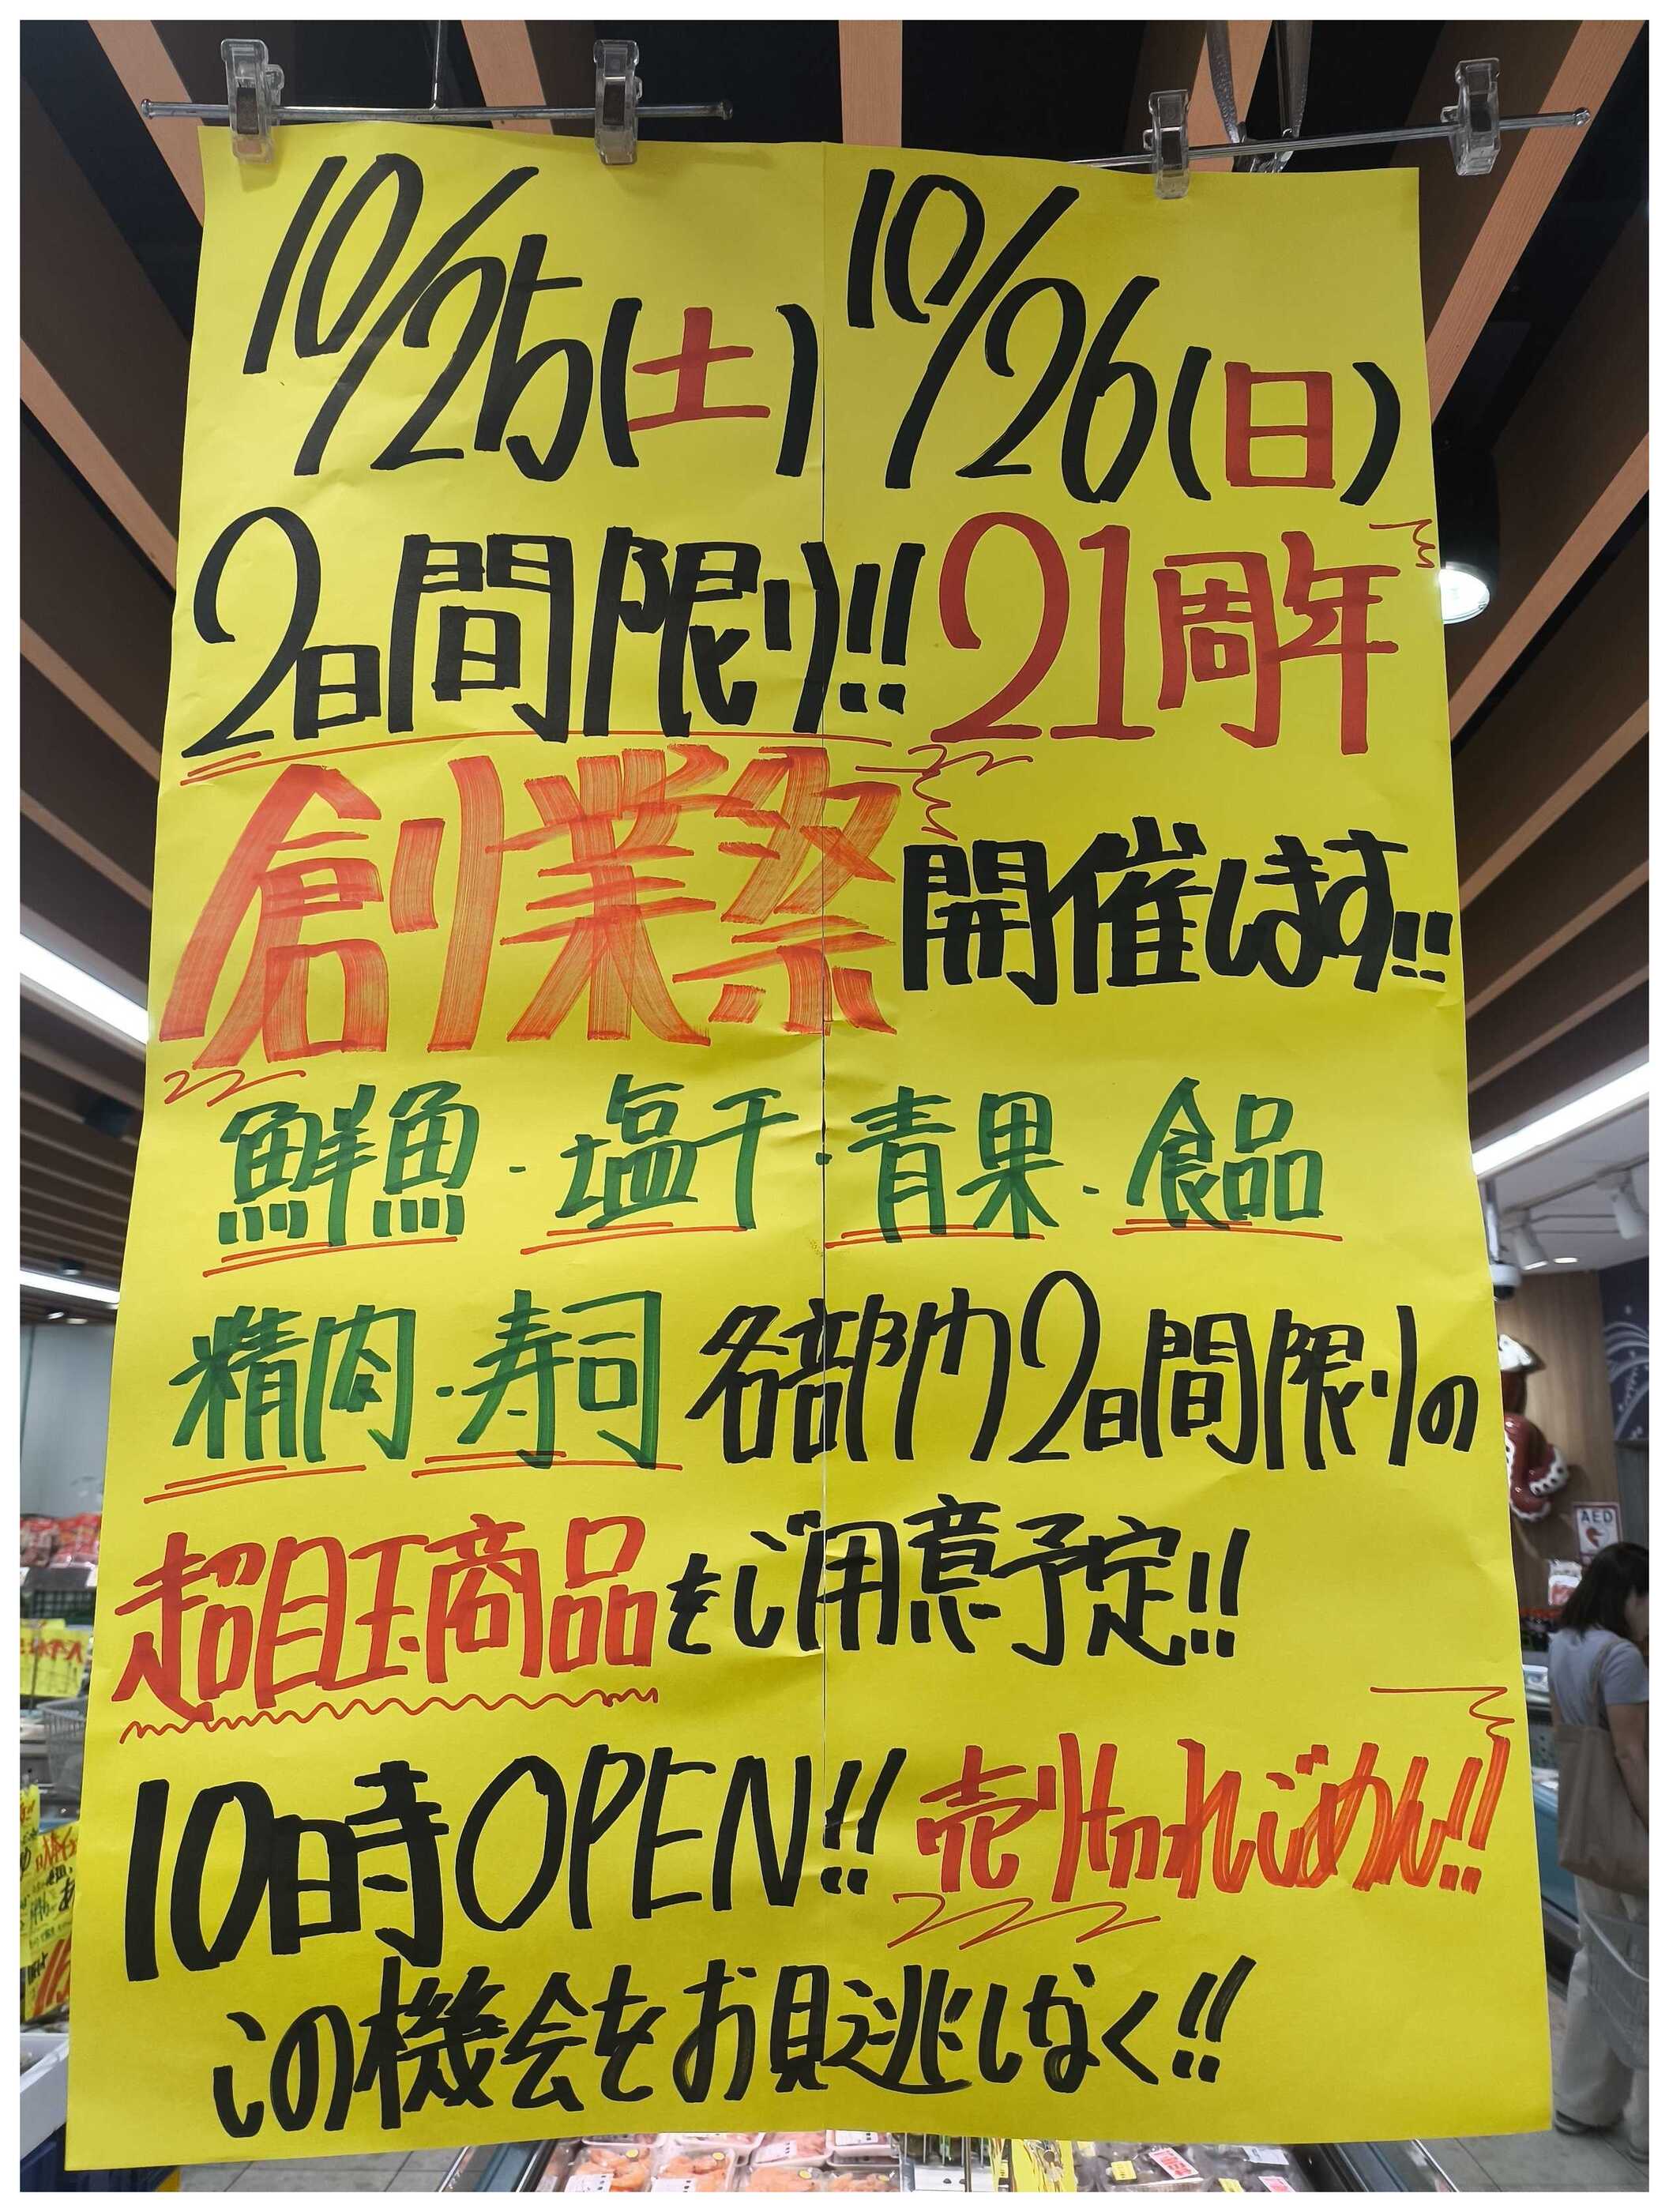 10/25(土) 10/26(日)
2日間限り!! 21周年
創業祭 開催します!!
鮮魚・塩干・青果・食品
精肉・寿司 各部門2日間限りの
超目玉商品をご用意予定!!
10時OPEN!! 売り切れごめん!!
この機会をお見逃しなく!!
AED